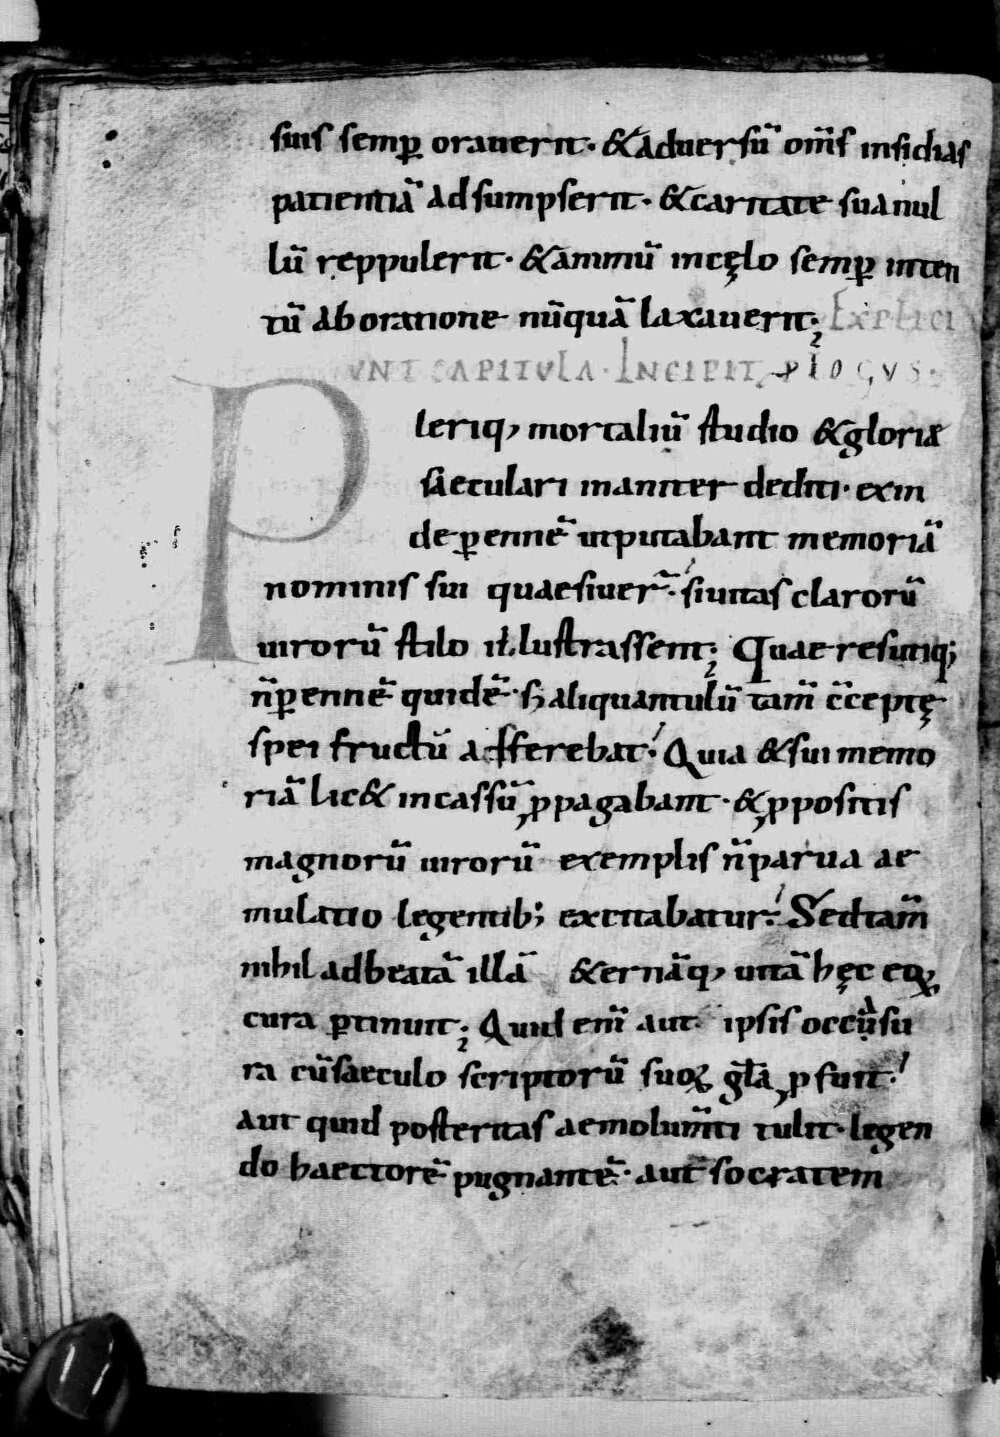 suis semp̱ orauerit· &aduersū om̄s insidias
patientiā adsumpserit· &caritate sua nul
lū reppulerit· &animū incęlo semp̱ inten
tū ab oratione nūquā laxauerit; EXPLICI
UNT CAPITULA· INCIPIT P̱LOGUS·
Pleriq, mortaliū studio &gloriæ
saeculari inaniter dediti· exin
de p̱ennē utputabant memoriā
nominis sui quaesiuer̄· siuitas clarorū
uirorū stilo illustrassent; Quae resutiq;
n̄p̱ennē quidē· sꝫ aliquantulū tam̄ c̄ceptę
spei fructū afferebat· Quia &sui memo
riā lic& incassū ꝓpagabant· &ꝓpositis
magnorū uirorū exemplis n̄parua ae
mulatio legentib; excitabatur· Sedtam̄
nihil adbeatā illā &ernāq, uitā hęc eoꝝ
cura p̱tinuit; Quid eni̅ aut ipsis occūsu
ra cūsaeculo scriptorū suoꝝ gl̄a ꝓfuit·
aut quid posteritas aemolum̄ti tulit· legen
do haectorē pugnantē· aut socratem